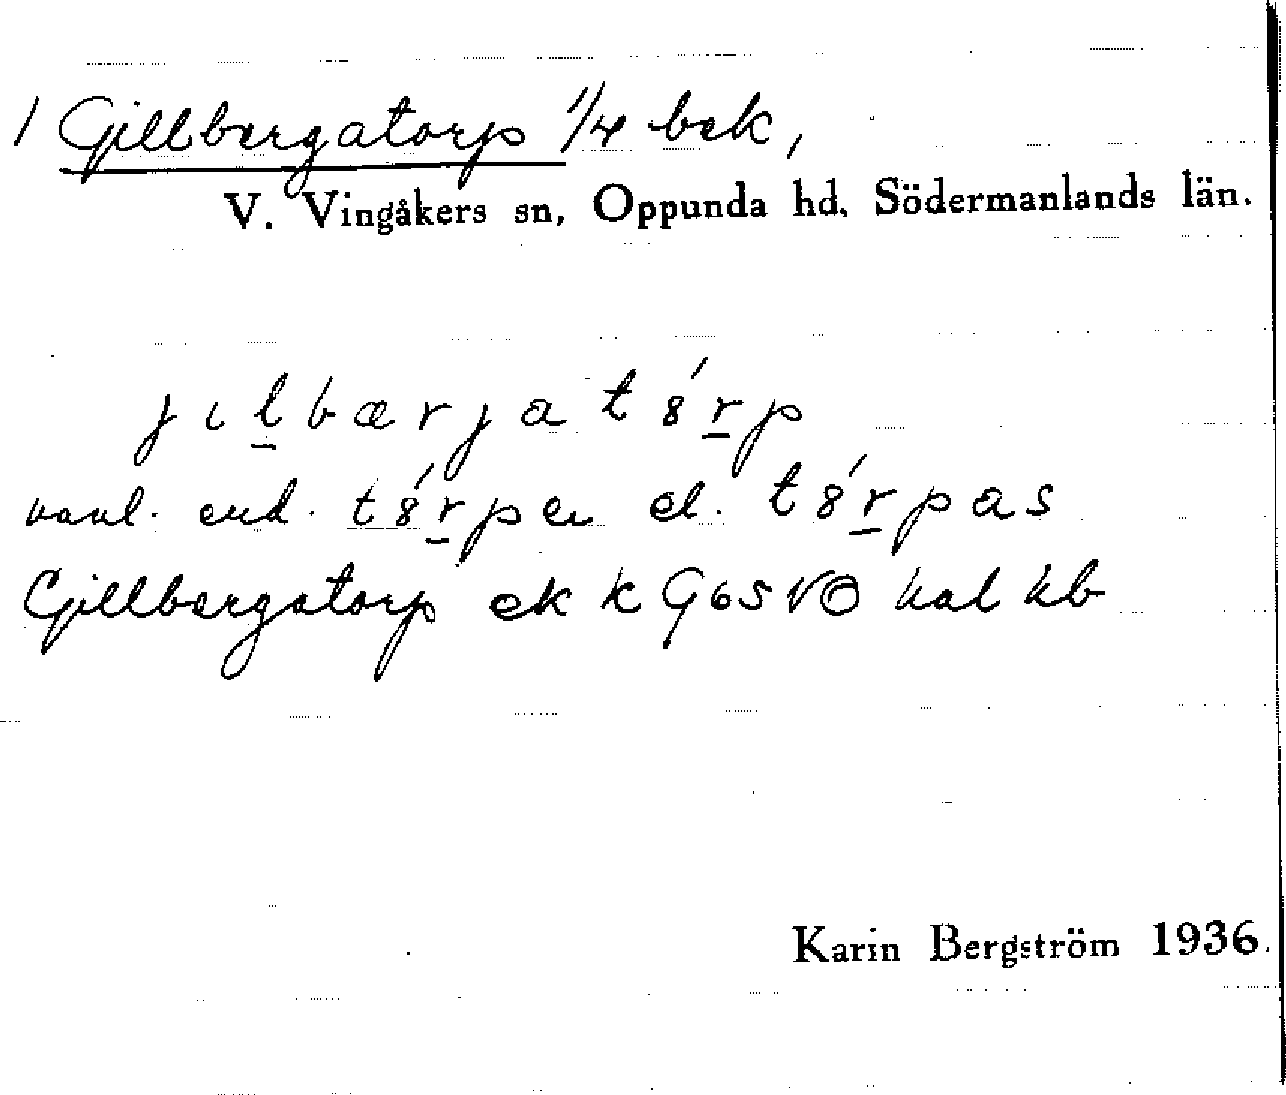 1 Gillbergatorp 1/4 bek,
V. Vingåkers sn, Oppunda hd, Södermanlands län.
jɩl̠bærjatȣ́r̠p
vanl. end. tȣ́r̠pen el. tȣ́r̠pas
Gillbergatorp ek k G65 VO hal kb
Karin Bergström 1936.